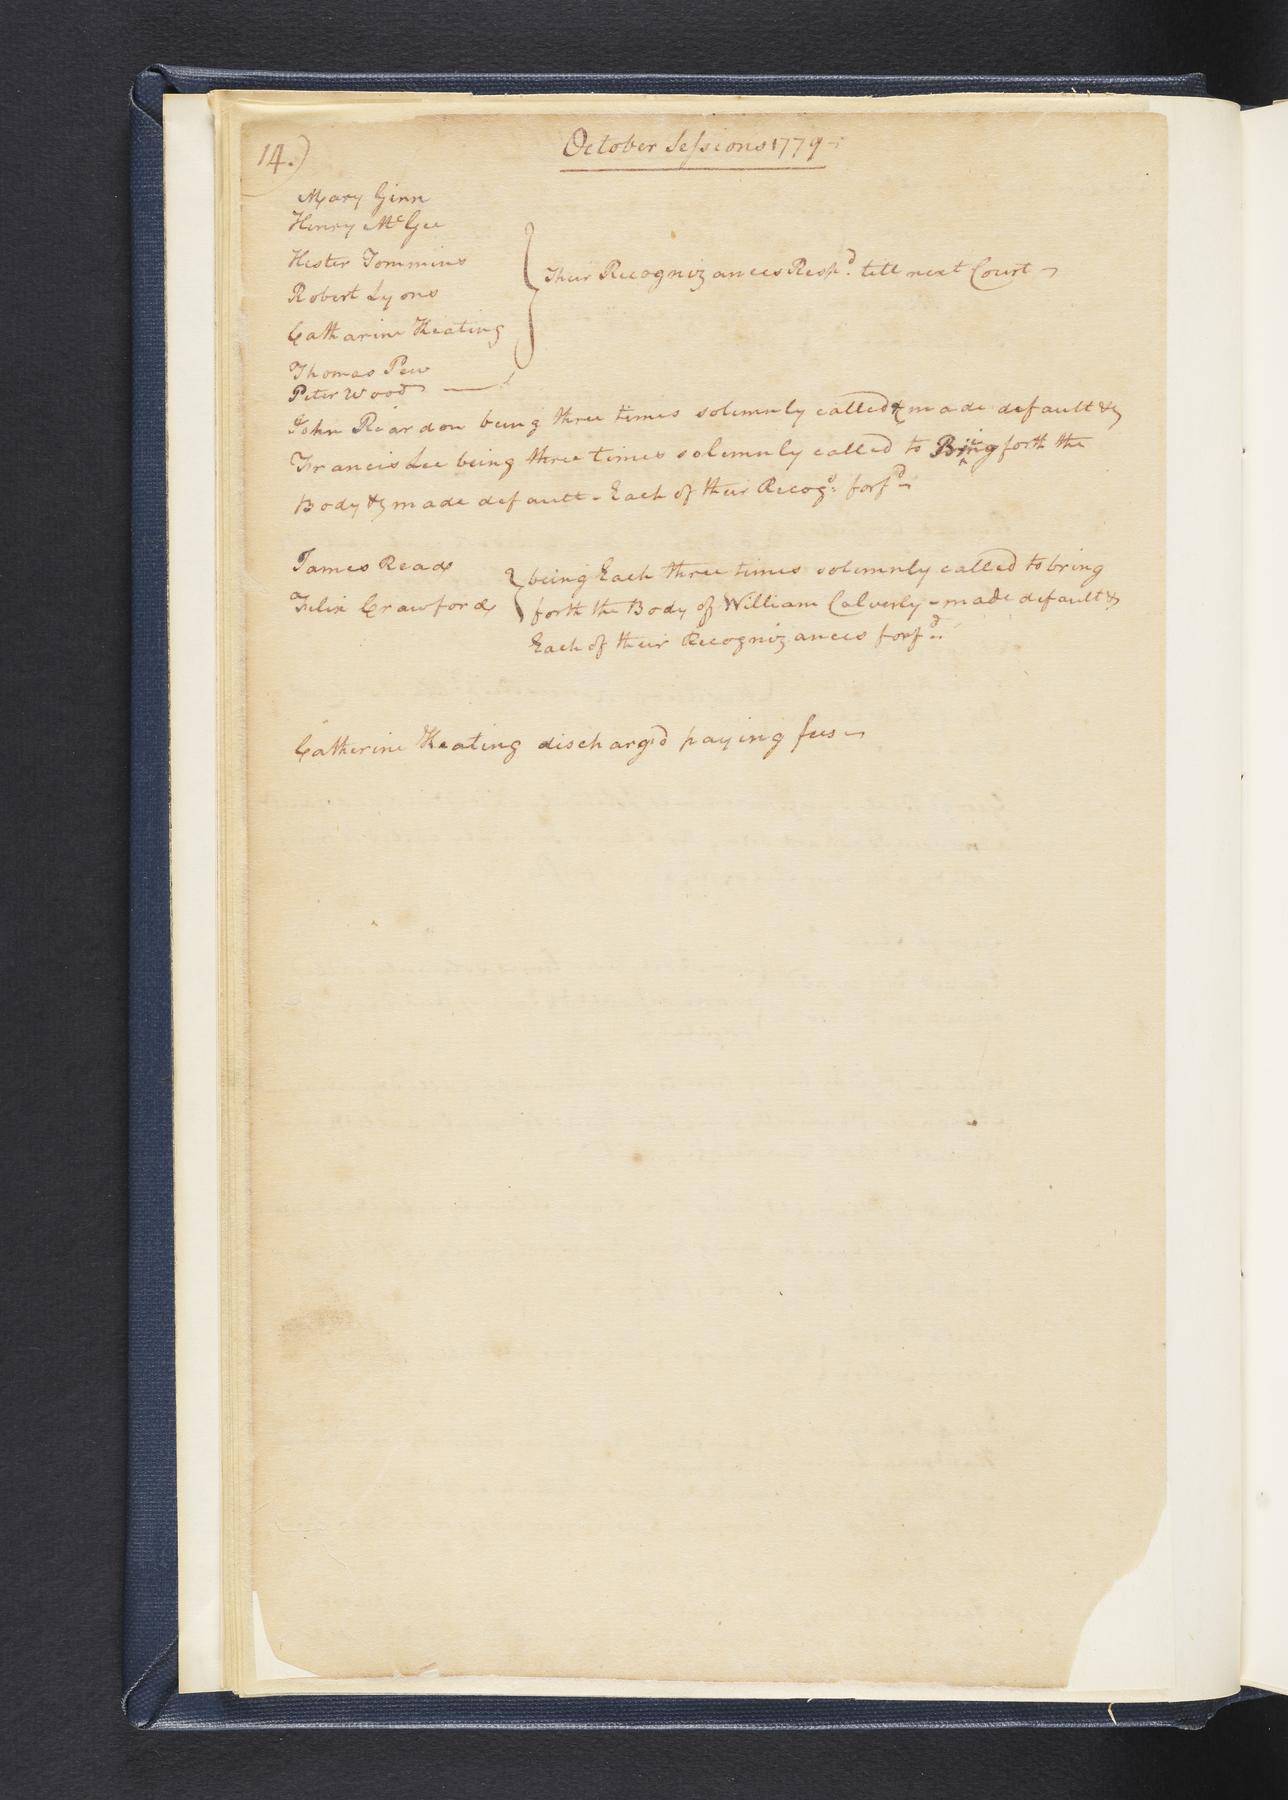 14.)
October Sessions 1779-
Mary Ginn
Henry McGee
Hester Tommins
Robert Lyons
Catharine Keating
Thomas Pew
Peter Wood
Their Recognizances Respd. till next Court
John Reardon being three times solemnly called & made default &
Francis Lee being three times solemnly called to Bring forth the
Body & made default - Each of their Recogs. forfd.
James Read
Felix Crawford
being Each three times solemnly called to bring
forth the Body of William Calverly - made default &
Each of their Recognizances forfd.
Catherine Keating discharg'd paying fees